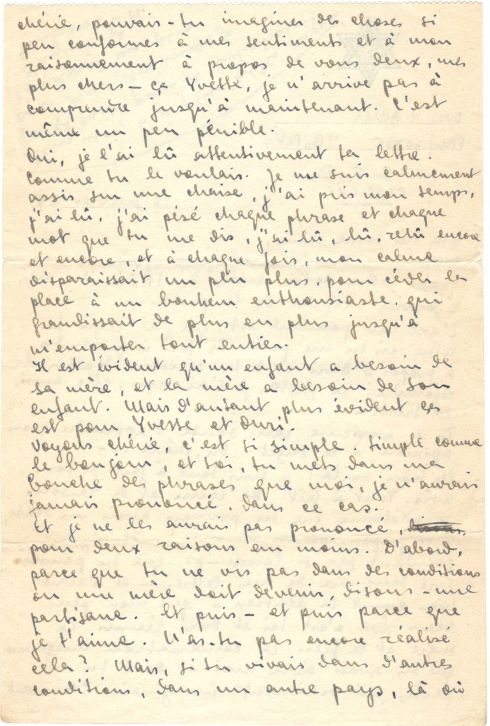 chérie, pouvais-tu imaginer des choses si
peu conformes à mes sentiments et à mon
raisonnement à propos de vous deux, mes
plus chers – ça Yvette, je n'arrive pas à
comprendre jusqu'à maintenant. C'est
même un peu pénible.
Oui, je l'ai lû attentivement ta lettre.
Comme tu le voulais. Je me suis calmement
assis sur une chaise, j'ai pris mon temps,
j'ai lû, j'ai pésé chaque phrase et chaque
mot que tu me dis, j'ai lû, lû, relû encore
et encore, et à chaque fois, mon calme
disparaissait un plu plus, pour céder la
place à un bonheur enthousiaste, qui
grandissait de plus en plus jusqu'à
m'emporter tout entier.
Il est évident qu'un enfant a besoin de
sa mère, et la mère a besoin de son
enfant. Mais d'autant plus évident ça
est pour Yvette et Ouri.
Voyons chérie, c'est si simple. Simple comme
le bonjour, et toi, tu mets dans ma
bouche des phrases que moi, je n'aurais
jamais prononcé, dans ce cas.
Et je ne les aurais pas prononcé,
pour deux raisons au moins. D'abord,
parce que tu ne vis pas dans des conditions
où une mère doit devenir, disons – une
partisane. Et puis – et puis parce que
je t'aime. N'as-tu pas encore réalisé
cela? Mais, si tu vivais dans d'autres
conditions, dans un autre pays, là où